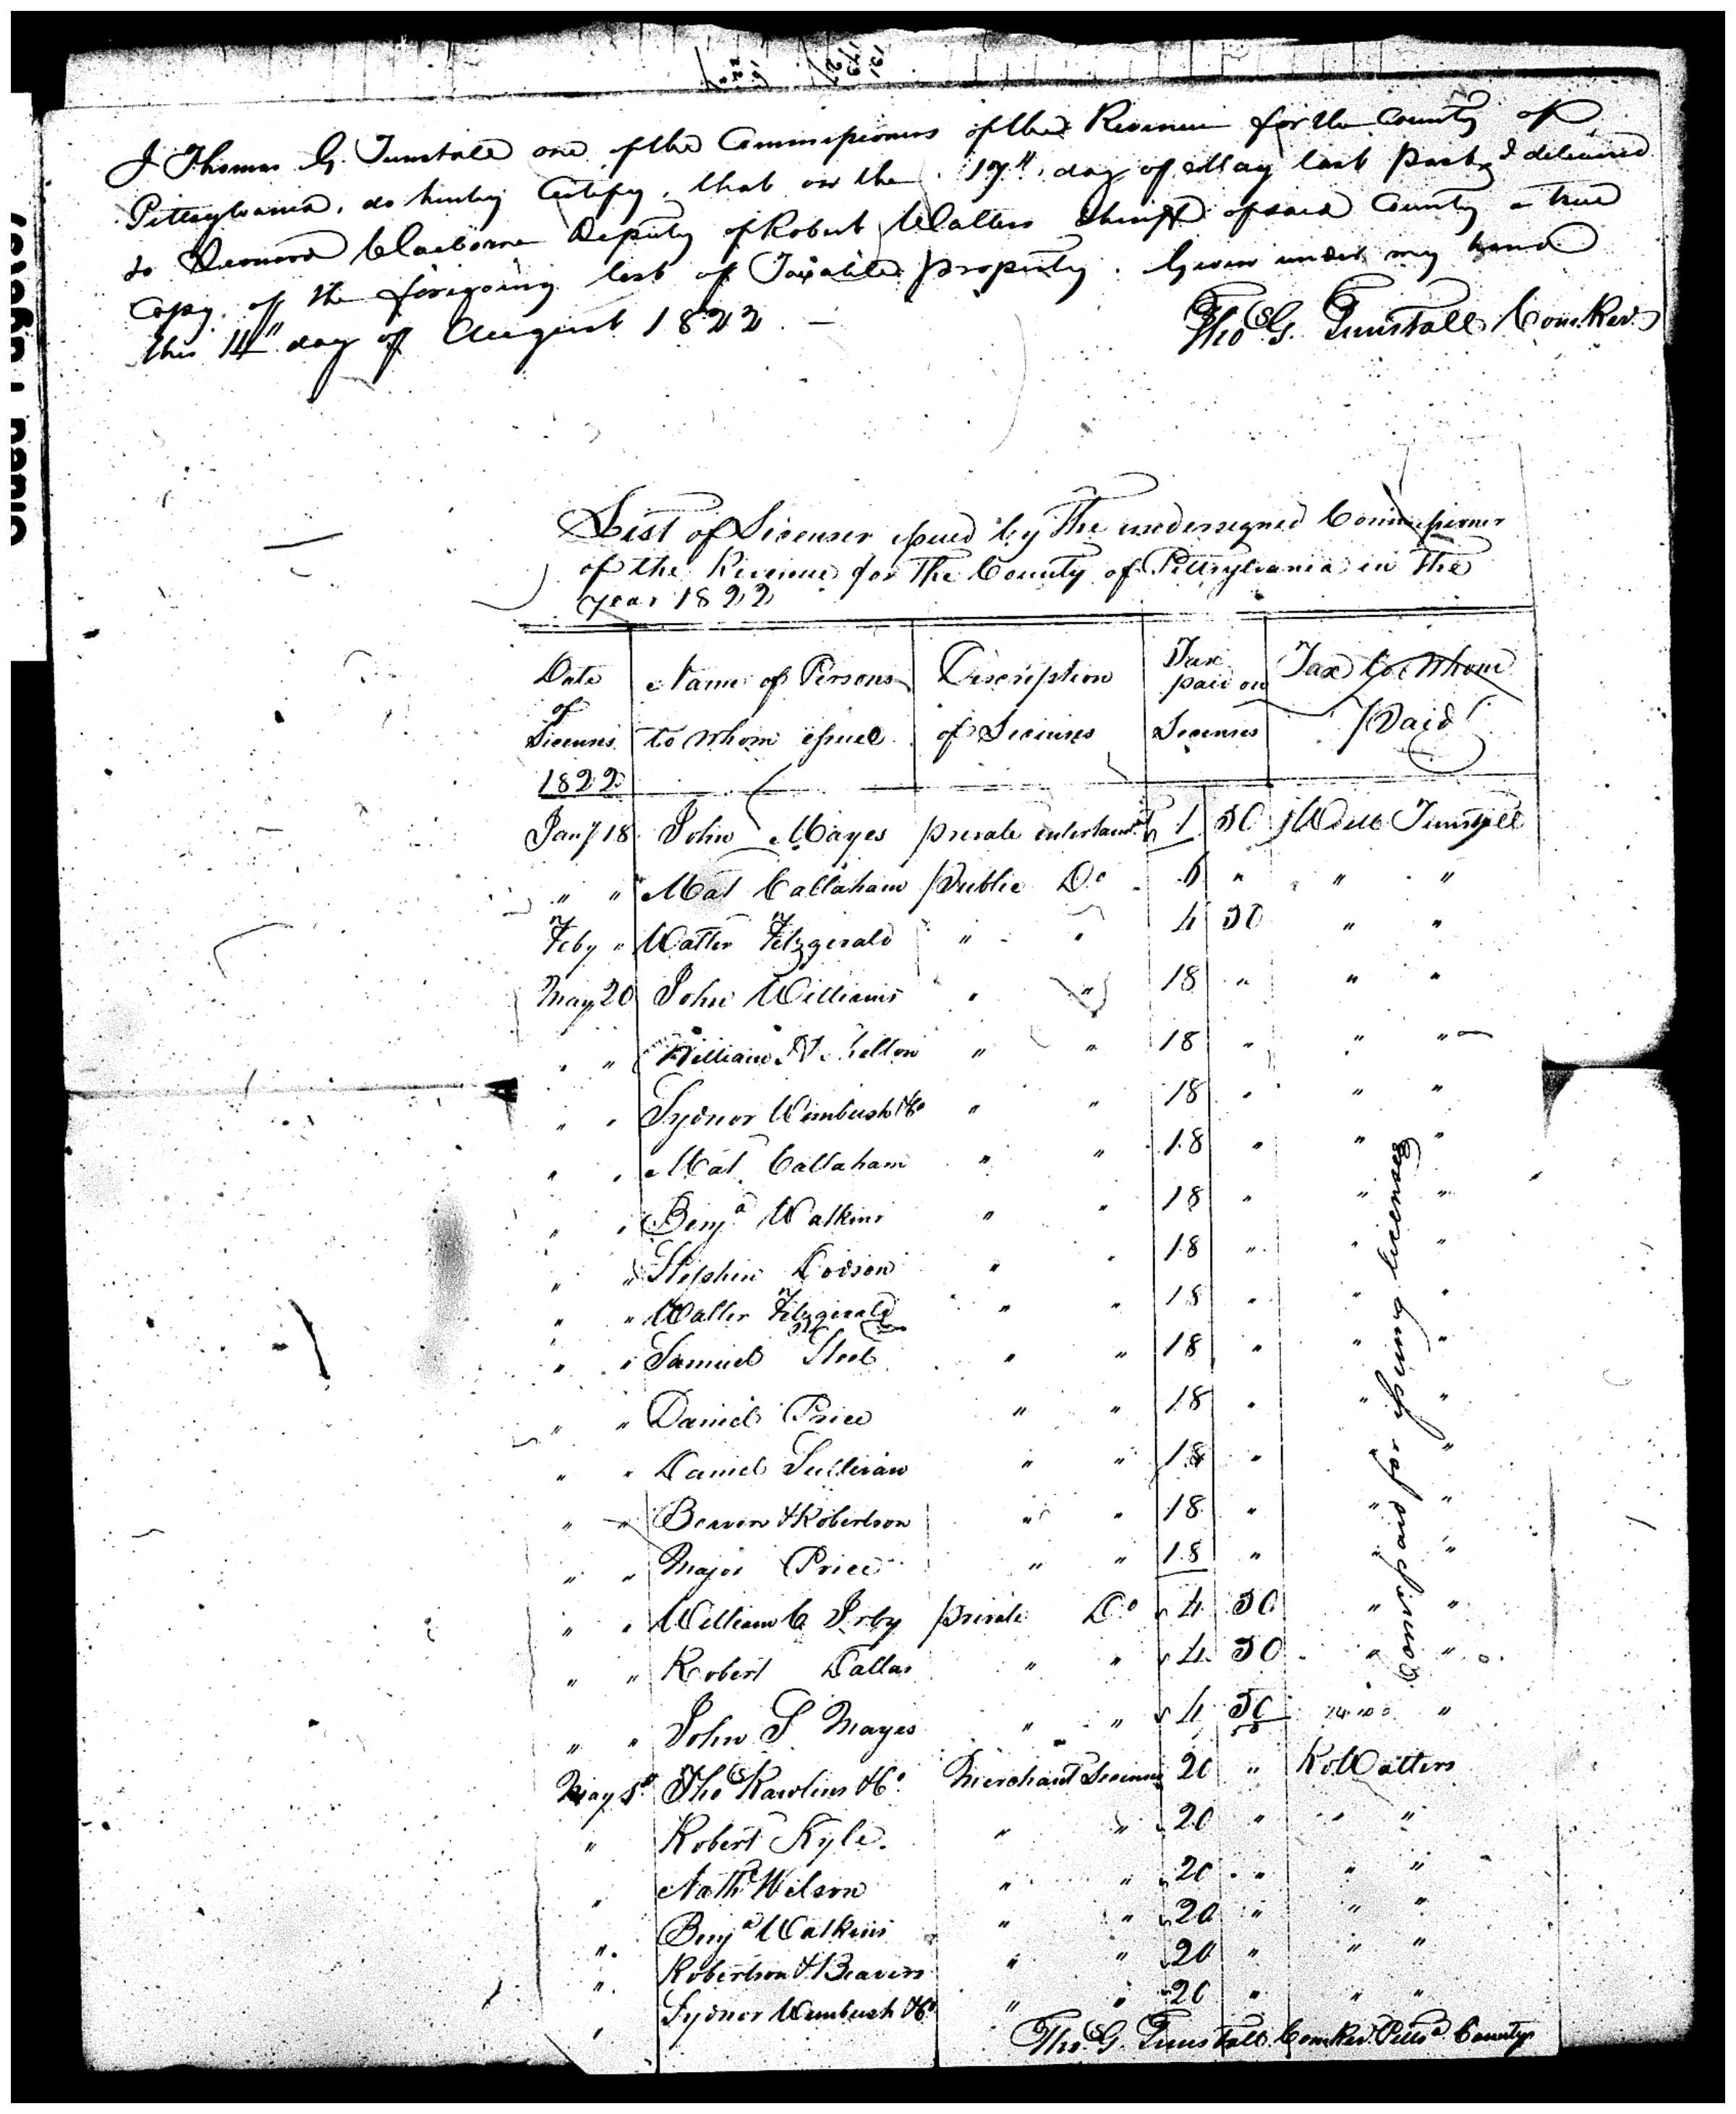 I Thomas G. Tunstall one of the Commissioners of the Revenue for the County of
Pittsylvania, do hereby Certify, that on the 17th day of May last past, I delivered
to Leonard Claiborne Deputy of Robert Walters Sheriff of said County a true
Copy of the foregoing list of Taxable property. Given under my hand
this 14th day of August 1822. —
Thos G. Tunstall Com. Rev.
List of Licenses issued by The undersigned Commissioner
of the Revenue for The County of Pittsylvania in The
year 1822
Date of Licenses | Name of Persons to whom issued | Discription of Licenses | Tax paid on Licenses | Tax to Whom Paid
1822
Jany 18 John Mayes private entertainmt 1 50 Will Tunstall
" " Mat Callaham Public Do 6 " " "
Feby " Walter Fitzgerald " " 4 50 " "
May 20 John Williams " " 18 " " "
" " William Shelton " " 18 " " "
" " Sydnor Wimbush & Co " " 18 " " "
" " Mat Callaham " " 18 " " "
" " Benja Watkins " " 18 " " "
" " Stephen Dodson " " 18 " " "
" " Walter Fitzgerald " " 18 " " "
" " Samuel " " 18 " " "
" " Daniel Price " " 18 " " "
" " Daniel Sullivan " " 18 " " "
" " Beavers & Robertson " " 18 " " "
" " Major Price " " 18 " " "
" " William C Irby private Do 4 50 " "
" " Robert Dallas " " 4 50 " "
" " John S Mayes " " 4 50 "
May Thos Rawlins & Co Merchant License 20 " Ro Walters
" Robert Kyle " " 20 " " "
" Nathl Wilson " " 20 " " "
" Benja Watkins " " 20 " " "
" Robertson & Beavers " " 20 " " "
" Sydnor Wimbush & Co " " 20 " " "
Thos G. Tunstall Com Rev. Pitta County
Comissions for issuing licenses